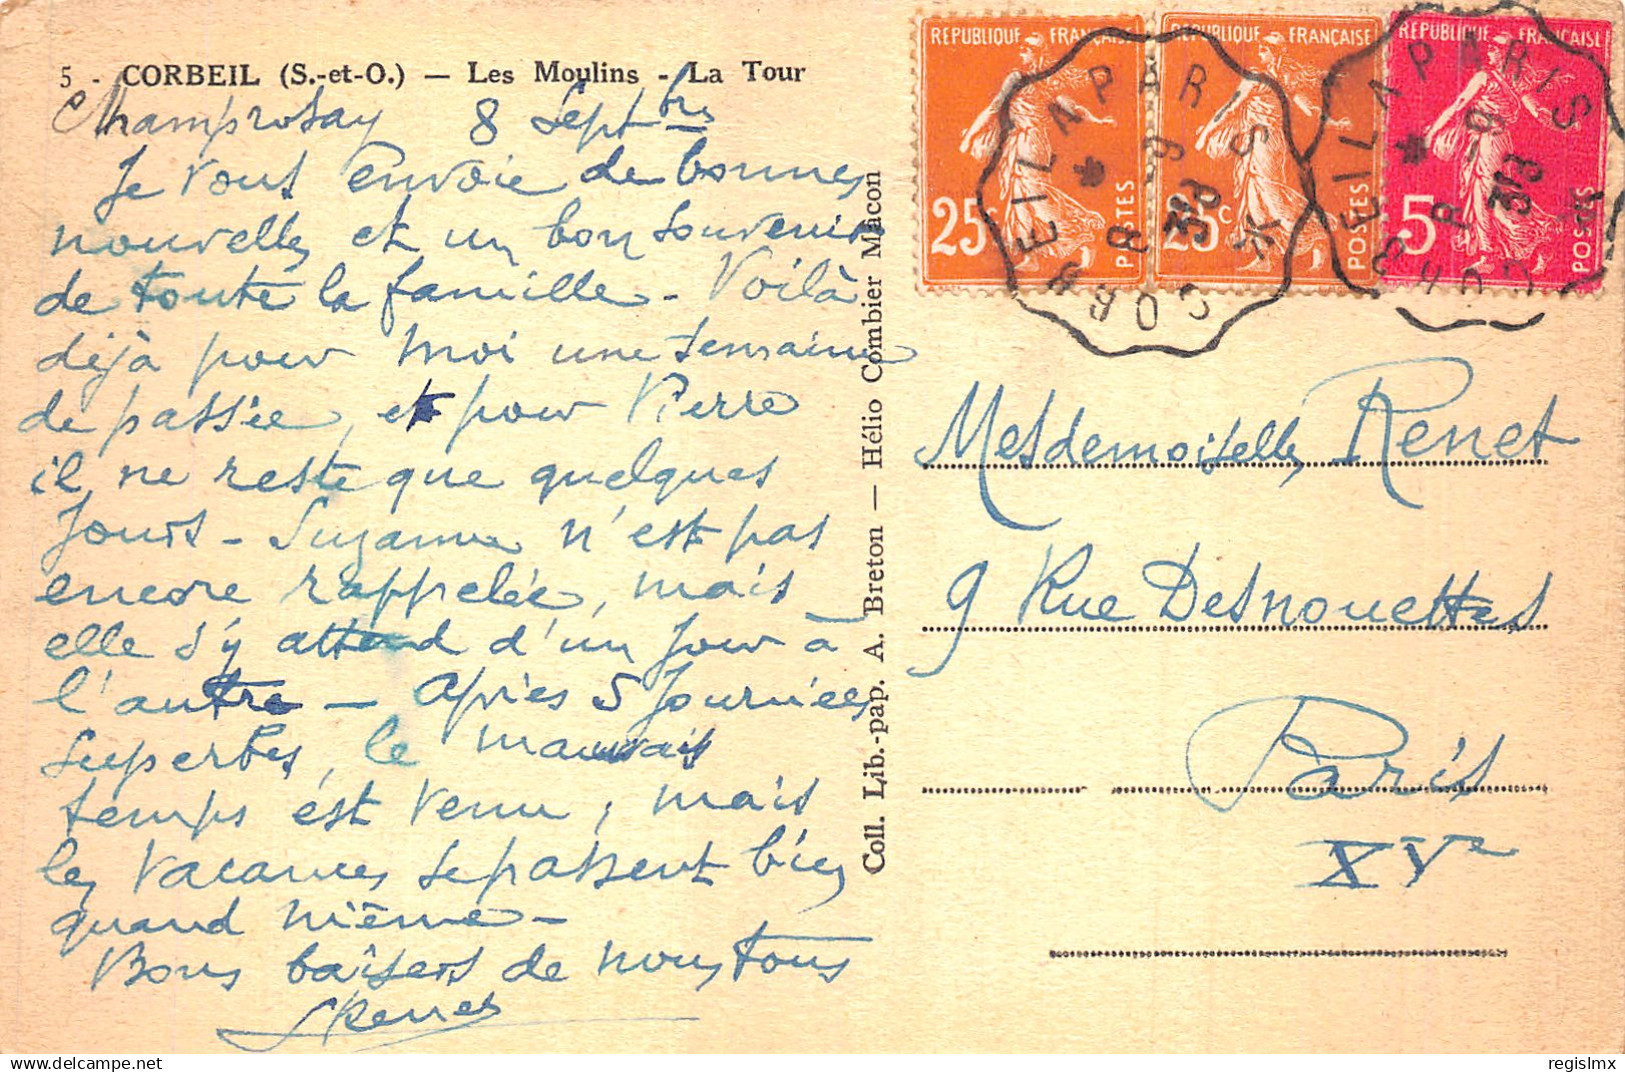 5 - CORBEIL (S.-et-O.) — Les Moulins - La Tour
Champrosay 8 Septbre
Je vous envoie de bonnes
nouvelles et un bon souvenir
de toute la famille - Voilà
déjà pour moi une semaine
de passée, et pour Pierre
il ne reste que quelques
jours - Suzanne n'est pas
encore rappelée, mais
elle s'y attend d'un jour à
l'autre - Après 5 journées
superbes, le mauvais
temps est venu, mais
les vacances se passent bien
quand même -
Bons baisers de nous tous
Coll. Lib.-pap. A. Breton — Hélio Combier Macon
REPUBLIQUE FRANÇAISE
25c
POSTES
REPUBLIQUE FRANÇAISE
25c
POSTES
REPUBLIQUE FRANÇAISE
5c
POSTES
CORBEIL A PARIS
8 -9
38
CORBEIL A PARIS
8 -9
38
Mesdemoiselles Renet
9 Rue Desnouettes
Paris
XVe
regislmx